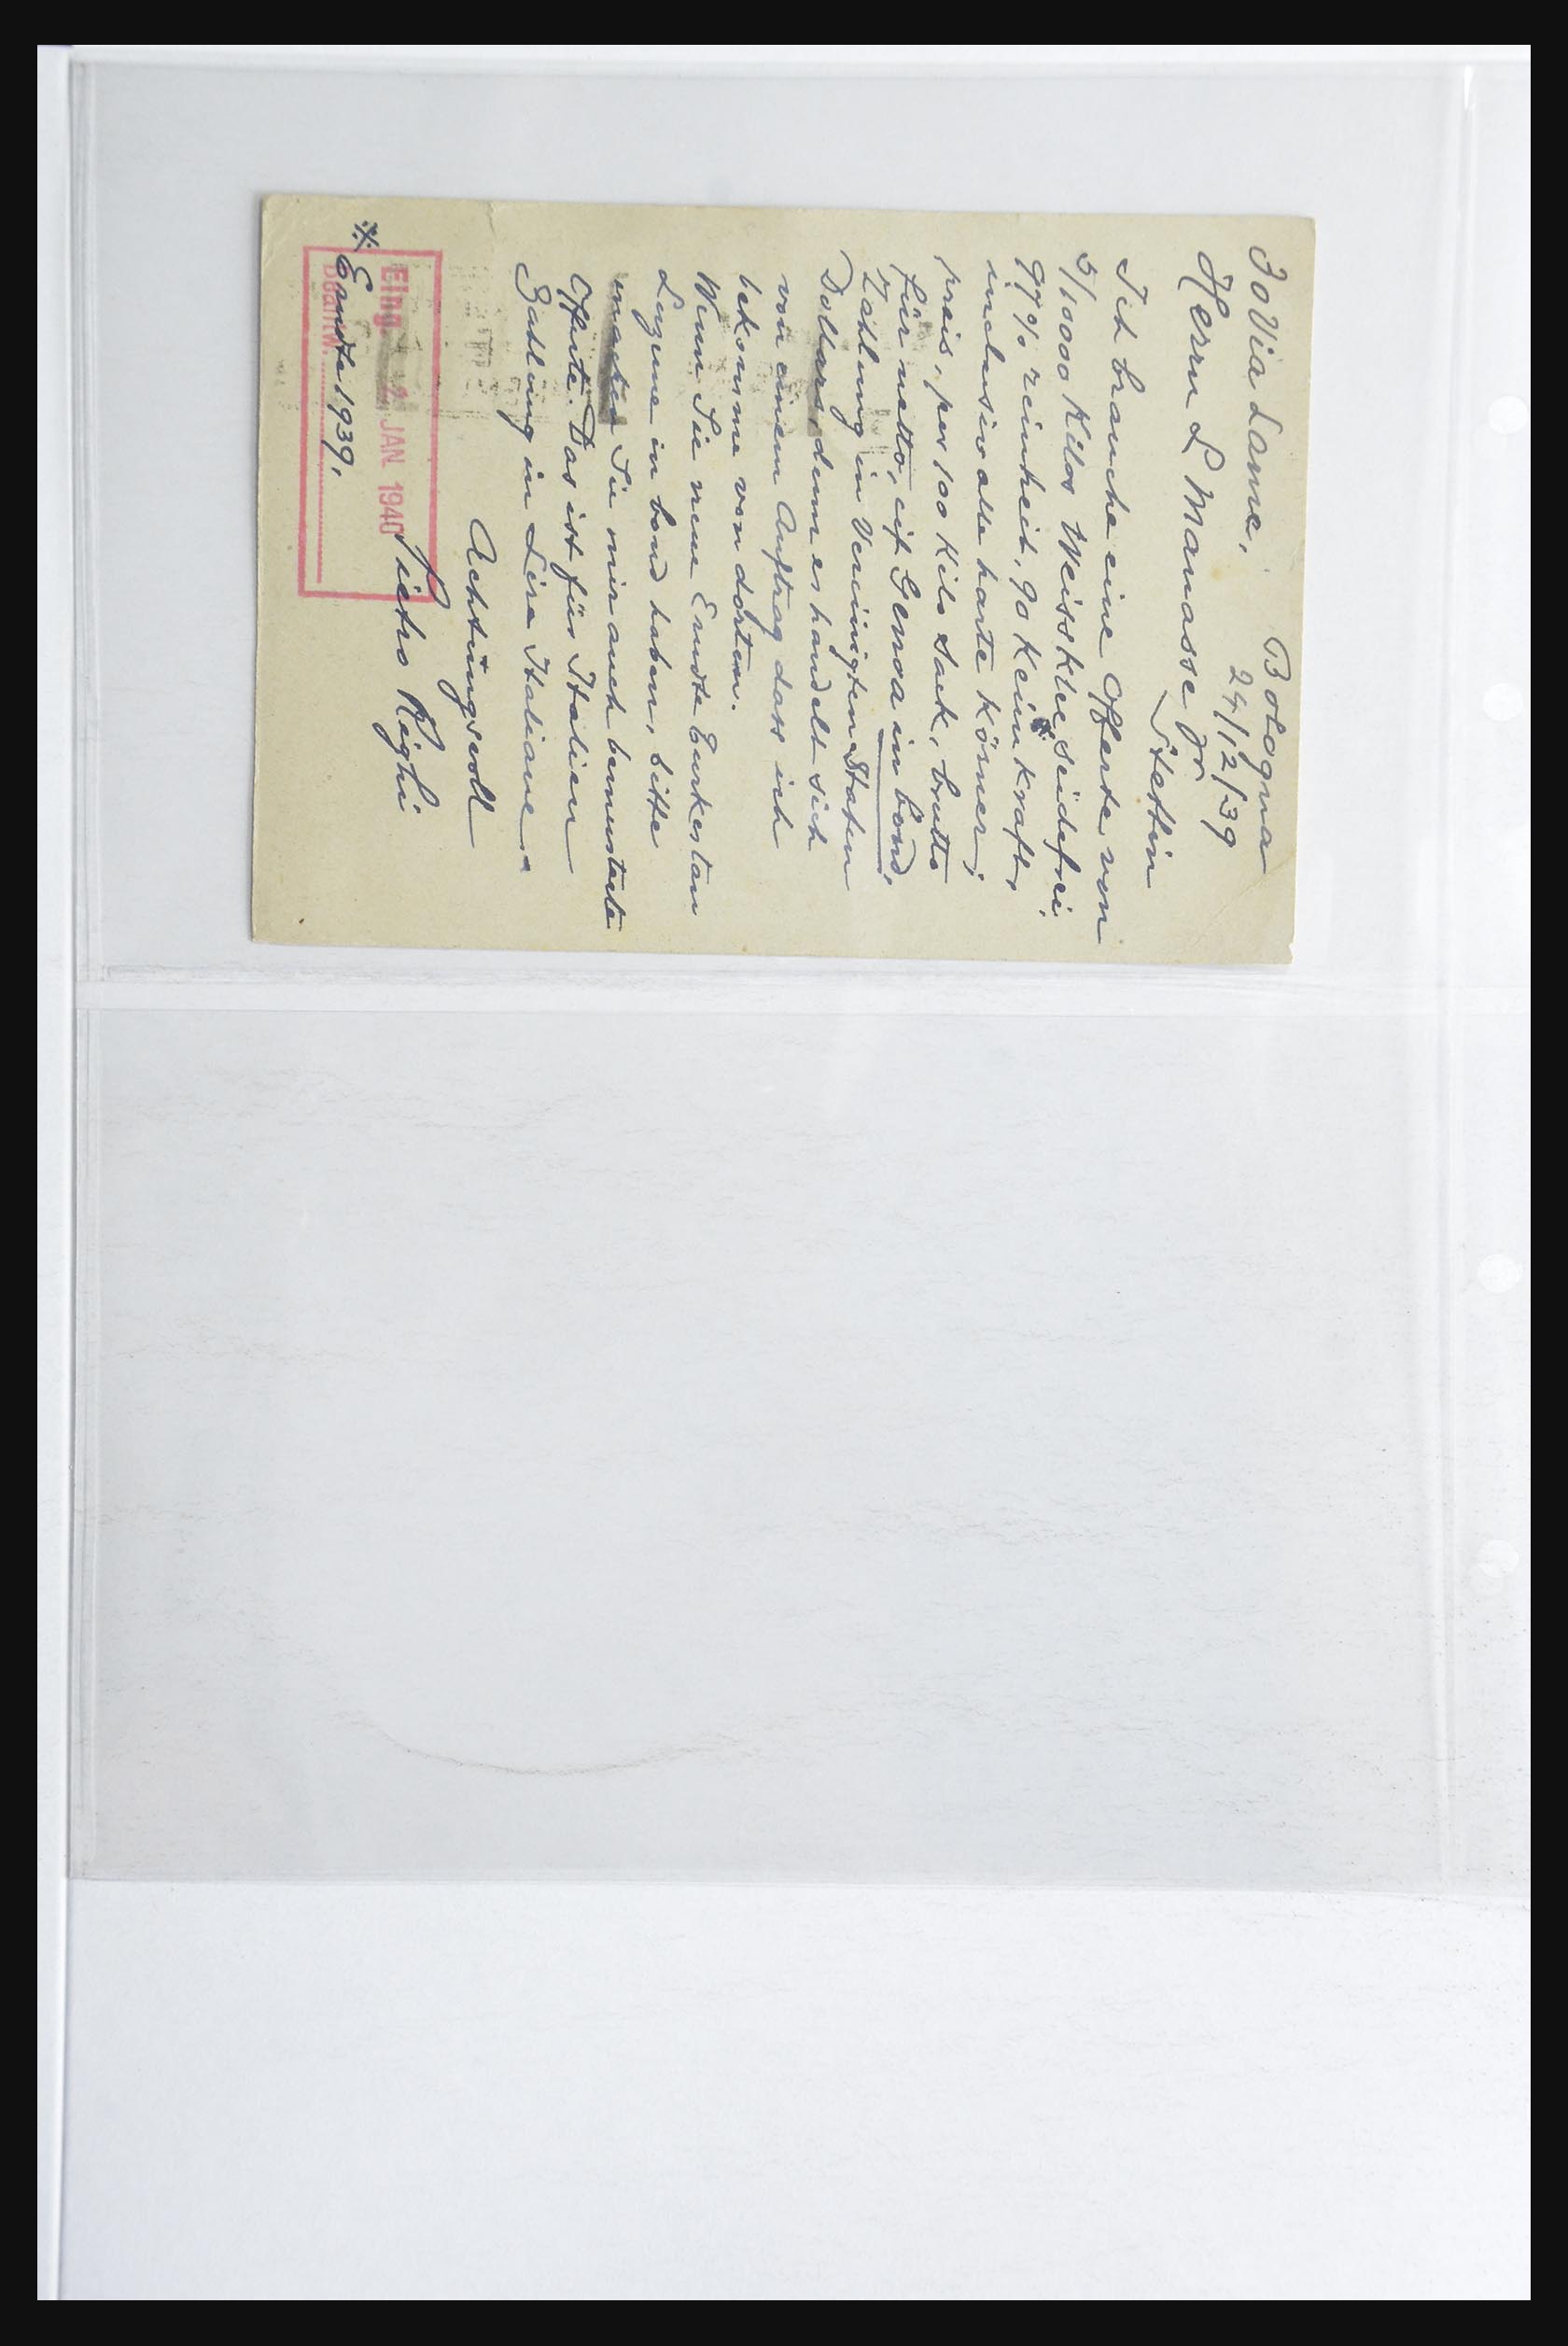 30 Via Lame, Bologna
24/12/39
Herrn L Manasse jr
Stettin
Ich brauche eine Offerte von
5/10000 Kilos Weissklee, seidefrei,
97% reinheit, 90 Keimkraft,
inclusiv alle harte Körner;
preis, per 100 Kilo Sack, brutto
für netto, cif Genoa in bond,
Zahlung in Vereinigten Staten
Dollars, denn es handelt sich
von einem Auftrag dass ich
bekomme von dorten.
Wenn Sie neue Erndte Turkestan
Luzerne in bond haben, bitte
machen Sie mir auch bemusterte
Offerte. Das ist für Italien
Zahlung in Lire Italiane.
Achtungsvoll
Pietro Righi
Eing. 2. JAN 1940
Beantw.
※ Erndte 1939.